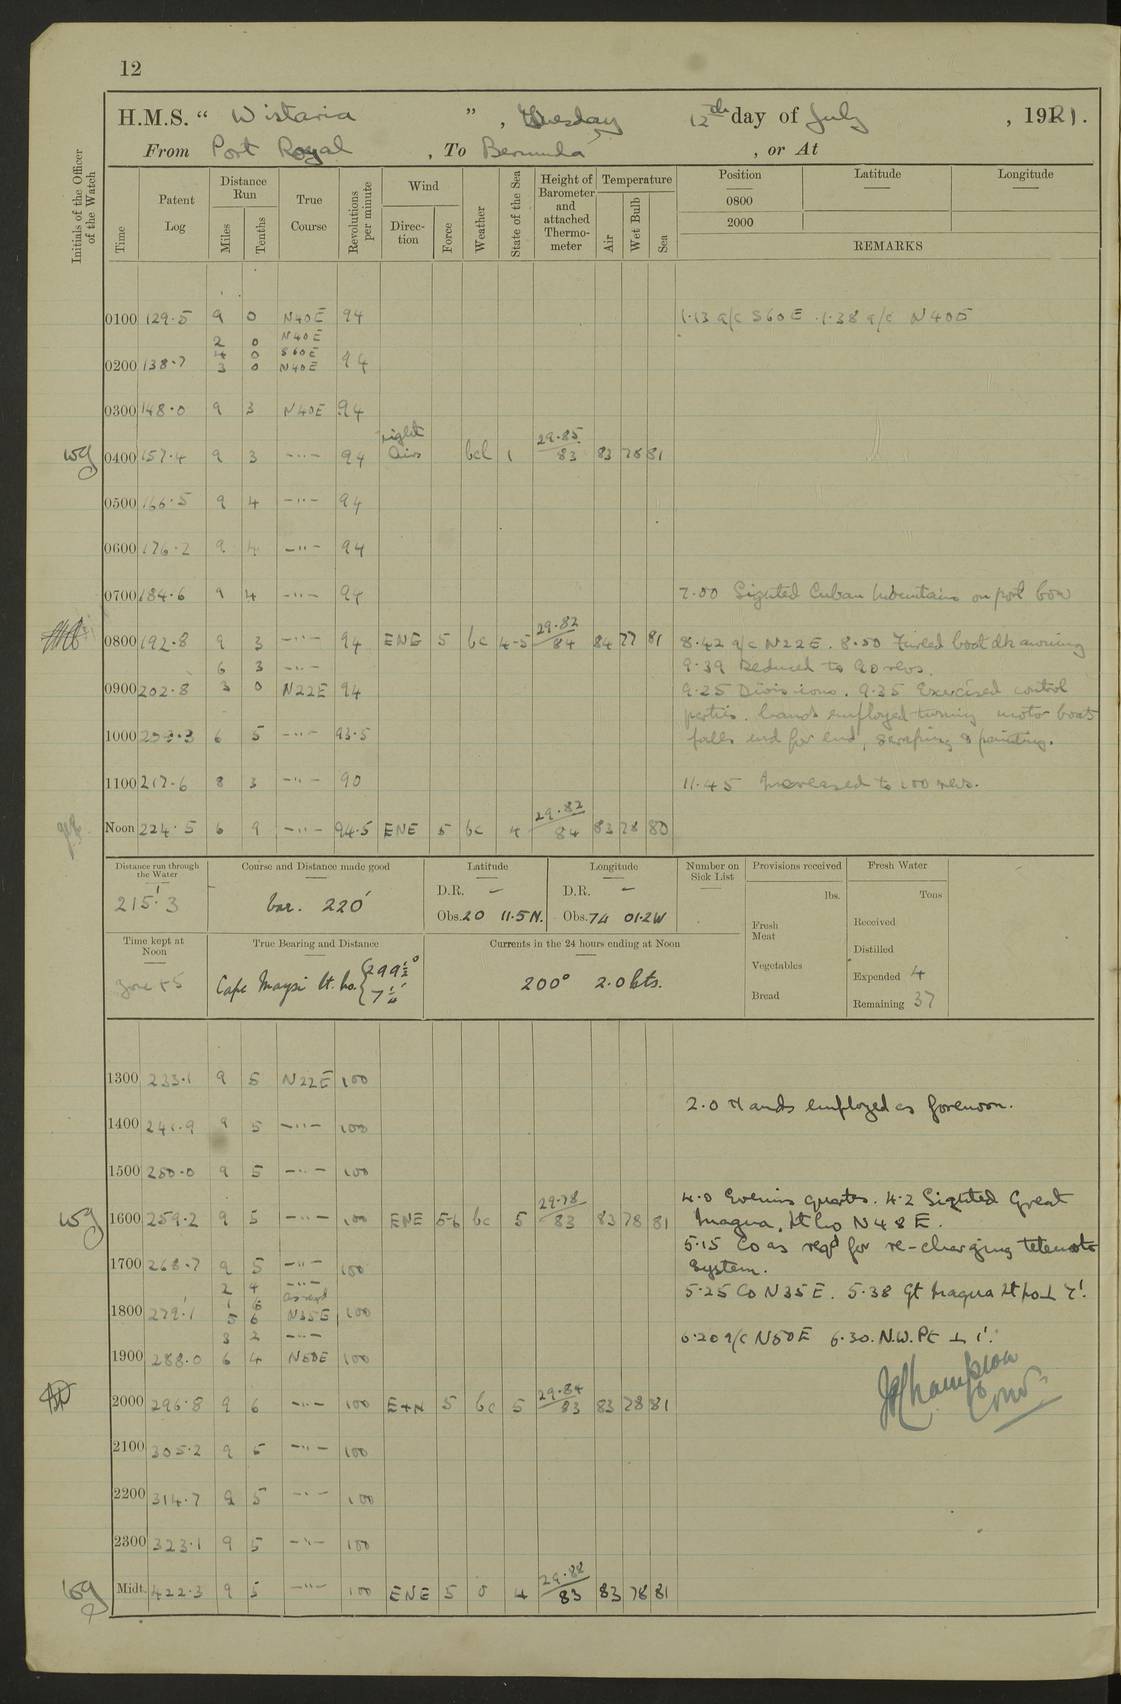 12
H.M.S. " Wistaria ", Tuesday 12th day of July, 1921.
From Port Royal, To Bermuda, or At
Initials of the Officer of the Watch
Time
Patent Log
Distance Run
Miles
Tenths
True Course
Revolutions per minute
Wind
Direction
Force
Weather
State of the Sea
Height of Barometer and attached Thermometer
Temperature
Air
Wet Bulb
Sea
Position
Latitude
Longitude
0800
2000
REMARKS
0100 129.5 9 0 N40E 94 1.13 a/c S60E. 1.38 a/c N40E
2 0 N40E
4 0 S60E
0200 138.7 3 0 N40E 94
0300 148.0 9 3 N40E 94
0400 157.4 9 3 -"- 94 Light Airs bcl 1 29.85/83 83 78 81
0500 166.5 9 4 -"- 94
0600 176.2 9 4 -"- 94
0700 184.6 9 4 -"- 94 7.00 Sighted Cuban Mountains on port bow
0800 192.8 9 3 -"- 94 ENE 5 bc 4-5 29.82/84 84 77 81 8.42 a/c N22E. 8.50 Furled boat dk awning
6 3 -"- 9.39 Reduced to 90 revs.
0900 202.8 3 0 N22E 94 9.25 Divisions. 9.35 Exercised control
parties. hands employed turning motor boats
1000 6 5 -"- 93.5 falls end for end, scraping & painting.
1100 217.6 8 3 -"- 90 11.45 Increased to 100 revs.
Noon 224.5 6 9 -"- 94.5 ENE 5 bc 4 29.82/84 83 78 80
Distance run through the Water
215.3
Course and Distance made good
bar. 220'
Latitude
D.R. –
Obs. 20 11.5N.
Longitude
D.R. –
Obs. 74 01.2W
Number on Sick List
Provisions received
lbs.
Fresh Meat
Vegetables
Bread
Fresh Water
Tons
Received
Distilled
Expended 4
Remaining 37
Time kept at Noon
Zone +5
True Bearing and Distance
Cape Maysi lt. ho. { 299½° 7¼'
Currents in the 24 hours ending at Noon
200° 2.0 kts.
1300 233.1 9 5 N22E 100
2.0 Hands employed as forenoon.
1400 241.9 9 5 -"- 100
1500 250.0 9 5 -"- 100
4.0 Evening quarters. 4.2 Sighted Great
1600 259.2 9 5 -"- 100 ENE 5-6 bc 5 29.78/83 83 78 81 Inagua, Lt ho N48E.
5.15 Co as req'd for re-charging telemotor
1700 268.7 9 5 -"- 100 system.
2 4 -"- 5.25 Co N35E. 5.38 Gt Inagua Lt ho ⊥ 7'.
1 6 as reqd
1800 279.1 5 6 N35E 100
3 2 -"- 6.20 a/c N50E 6.30. N.W. Pt ⊥ 1'.
1900 288.0 6 4 N50E 100
2000 296.8 9 6 -"- 100 E+N 5 bc 5 29.84/83 83 78 81
2100 305.2 9 5 -"- 100
2200 314.7 9 5 -"- 100
2300 323.1 9 5 -"- 100
Midt. 422.3 9 5 -"- 100 ENE 5 o 4 29.88/83 83 78 81